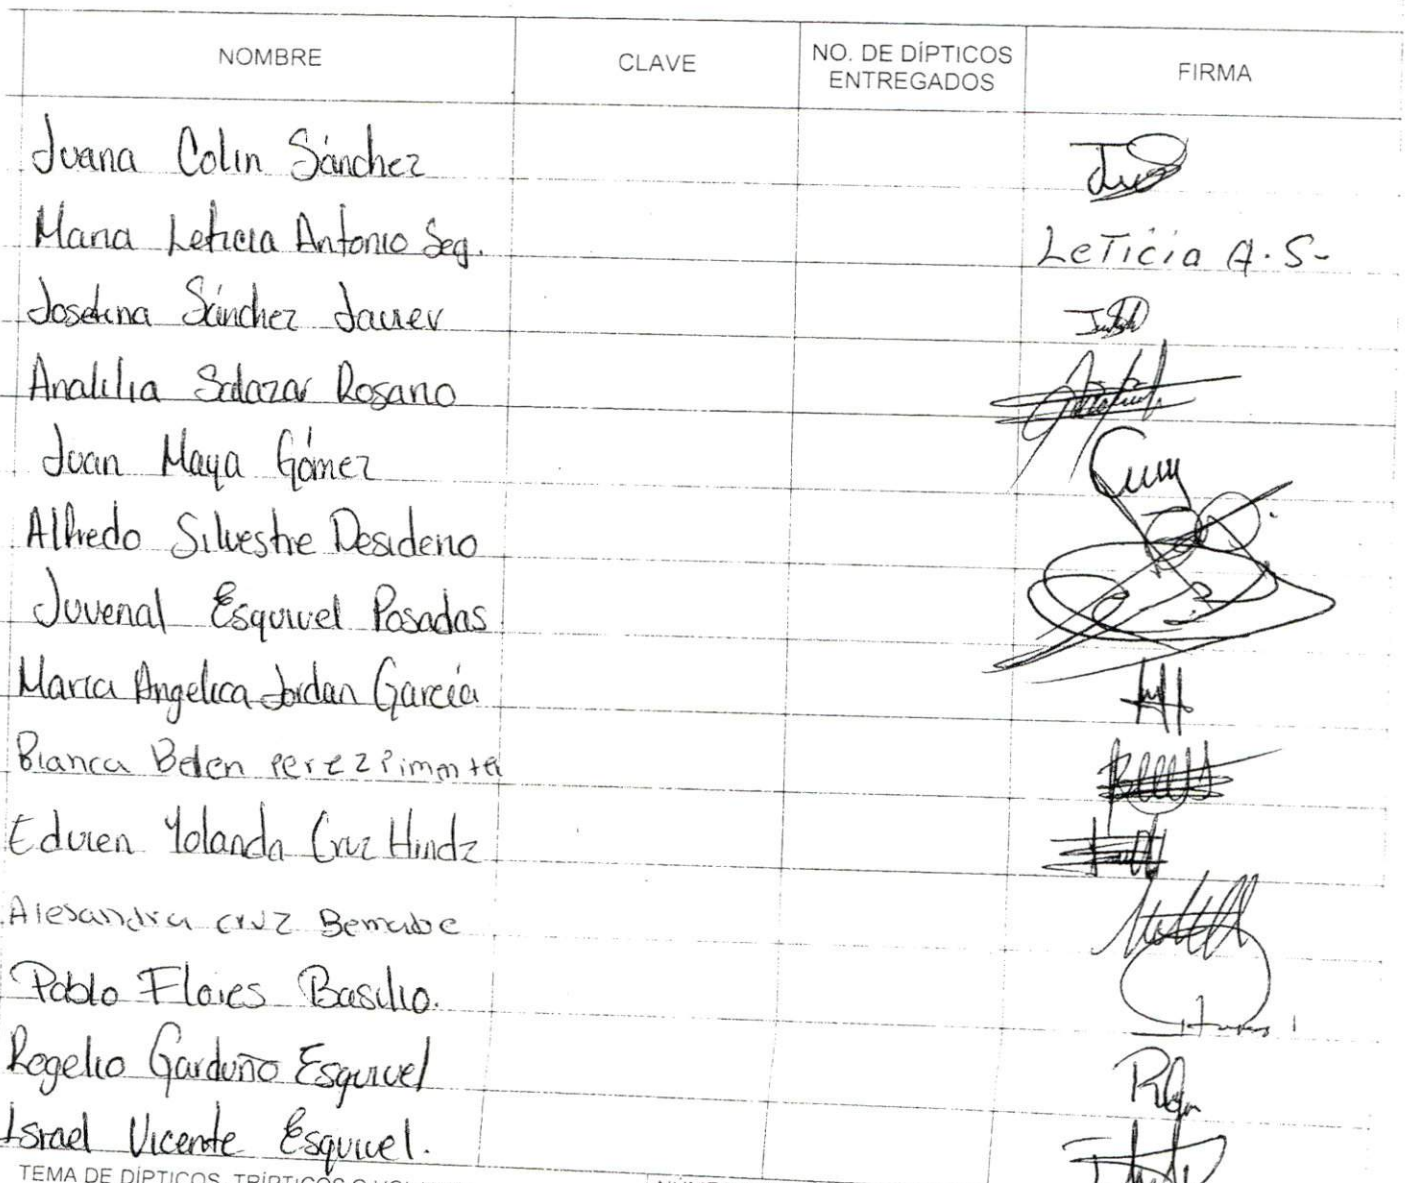 NOMBRE CLAVE NO. DE DÍPTICOS ENTREGADOS FIRMA
Juana Colin Sánchez
Maria Leticia Antonio Seg. LeTicia A.S-
Josefina Sánchez Javier
Analilia Salazar Rosano
Juan Maya Gómez
Alfredo Silvestre Desiderio
Juvenal Esquivel Posadas
Maria Angelica Jordan Garcia
Bianca Belen perez Pimentel
Eduien Yolanda Cruz Hindz
Alesandra cruz Bernabe
Pablo Flores Basilio.
Rogelio Garduño Esquivel
Israel Vicente Esquivel.
TEMA DE DÍPTICOS, TRÍPTICOS O